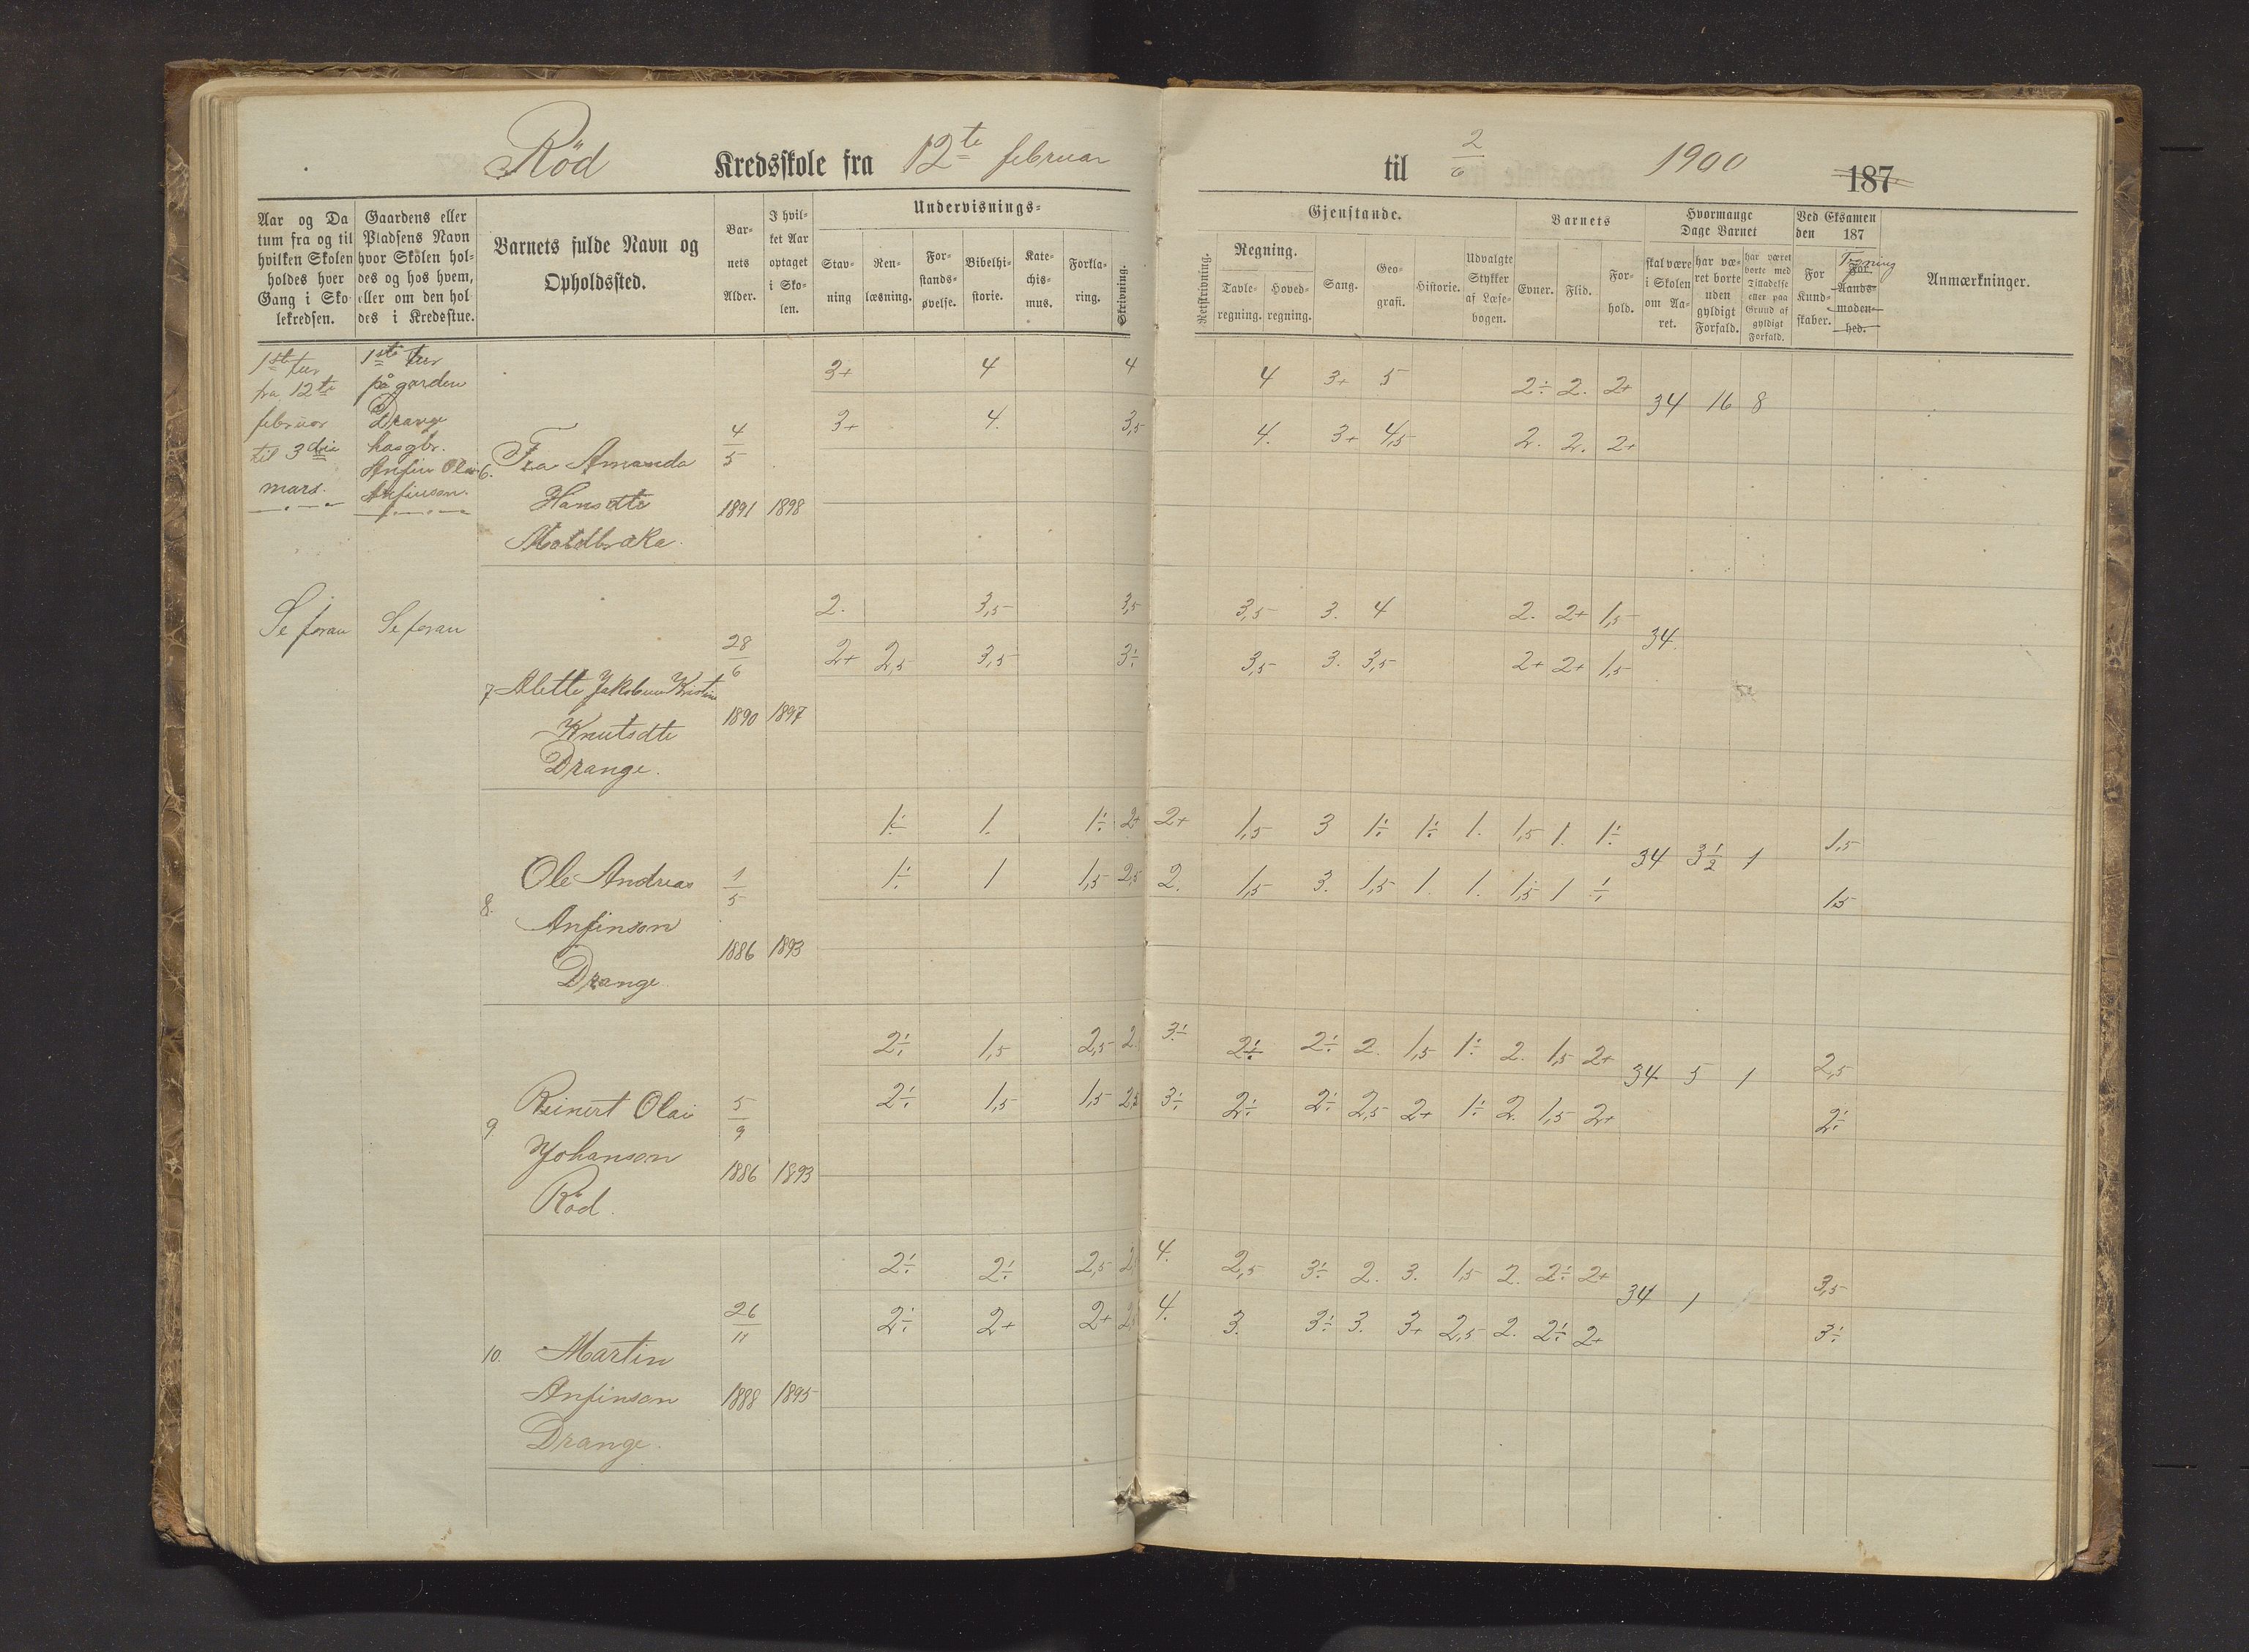 Röd Kredsskole fra 12te februar
til 2/6 1900 187
Aar og Da
tum fra og til
hvilken Skolen
holdes hver
Gang i Sko-
lekredsen.
Gaardens eller
Pladsens Navn
hvor Skolen hol-
des og hos hvem,
eller om den hol
des i Kredsstue.
Barnets fulde Navn og
Opholdssted.
Bar-
nets
Alder.
I hvil-
ket Aar
optaget
i Sko-
len.
Undervisnings-
Stav-
ning
Ren-
læsning.
For-
stands-
øvelse.
Bibelhi-
storie.
Kate-
chis-
mus.
Forkla-
ring.
Skrivning.
Gjenstande.
Retskrivning.
Regning.
Tavle-
regning.
Hoved-
regning.
Sang.
Geo-
grafi.
Historie.
Udvalgte
Stykker
af Læse-
bogen.
Barnets
Evner.
Flid.
For-
hold.
Hvormange
Dage Barnet
skal være
i Skolen
om Aa-
ret.
har væ-
ret borte
uden
gyldigt
Forfald.
har været
borte med
Tilladelse
eller paa
Grund af
gyldigt
Forfald.
Ved Eksamen
den 187
For
Kund-
skaber.
For
Aands-
moden-
hed.
Anmærkninger.
1ste tur
fra 12te
februar
til 3die
mars.
1ste tur
på garden
Drange
hos gbr.
Anfin Olai
Anfinson.
3+ 4 4 4 3+ 5 2÷ 2. 2+ 34 16 8
3+ 4. 3,5 4. 3+ 4,5 2. 2. 2+
6. Amanda 4/5
Hansdtr 1891 1898
Moldbrække.
Se foran Se foran
2. 3,5 3,5 3,5 3. 4 2. 2+ 1,5 34.
2+ 2,5 3,5 3÷ 3,5 3. 3,5 2+ 2+ 1,5
7 Alette Jakobine Kristine 28/6
Knutsdtr 1890 1897
Drange.
1÷ 1. 1÷ 2+ 2+ 1,5 3 1÷ 1÷ 1. 1,5 1. 1÷ 34 3½ 1 1,5
1÷ 1 1,5 2,5 2. 1,5 3. 1,5 1. 1. 1,5 1 1÷ 1,5
8. Ole Andreas 1/5
Anfinson
Drange 1886 1893
2÷ 1,5 2,5 2. 3÷ 2÷ 2÷ 2. 1,5 1÷ 2. 1,5 2+ 34 5 1 2,5
2÷ 1,5 1,5 2,5 3÷ 2÷ 2÷ 2,5 2+ 1÷ 2. 1,5 2+ 2÷
9 Reinert Olai 5/9
Johanson 1886 1893
Röd.
2÷ 2÷ 2,5 4. 2,5 3÷ 2. 3. 1,5 2. 2÷ 2+ 34 1 3,5
2÷ 2+ 2+ 4. 3. 3÷ 3. 3+ 2,5 2. 2÷ 2+ 3÷
10. Martin 26/11
Anfinson 1888 1895
Drange.